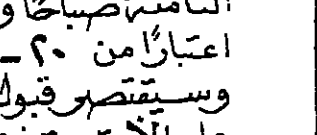 الثامنة صباحًا و
اعتبارًا من ٢٠ –
وسيقتصر قبول